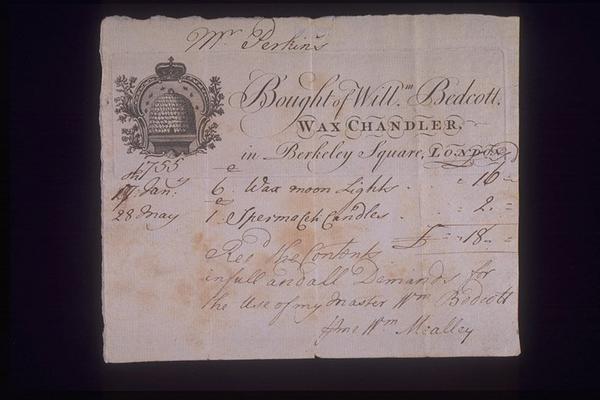 Mr Perkins
Bought of Will.m Bedcott.
WAX CHANDLER,
in Berkeley Square, LONDON
1755
17 Jany 6 Wax moon Lights . " 16 "
28 May 1 Spermaceti Candles . . " 2 "
£ " 18 "
Recd the Contents
in full and all Demands for
the Use of my Master Wm Bedcott
Wm Mealley